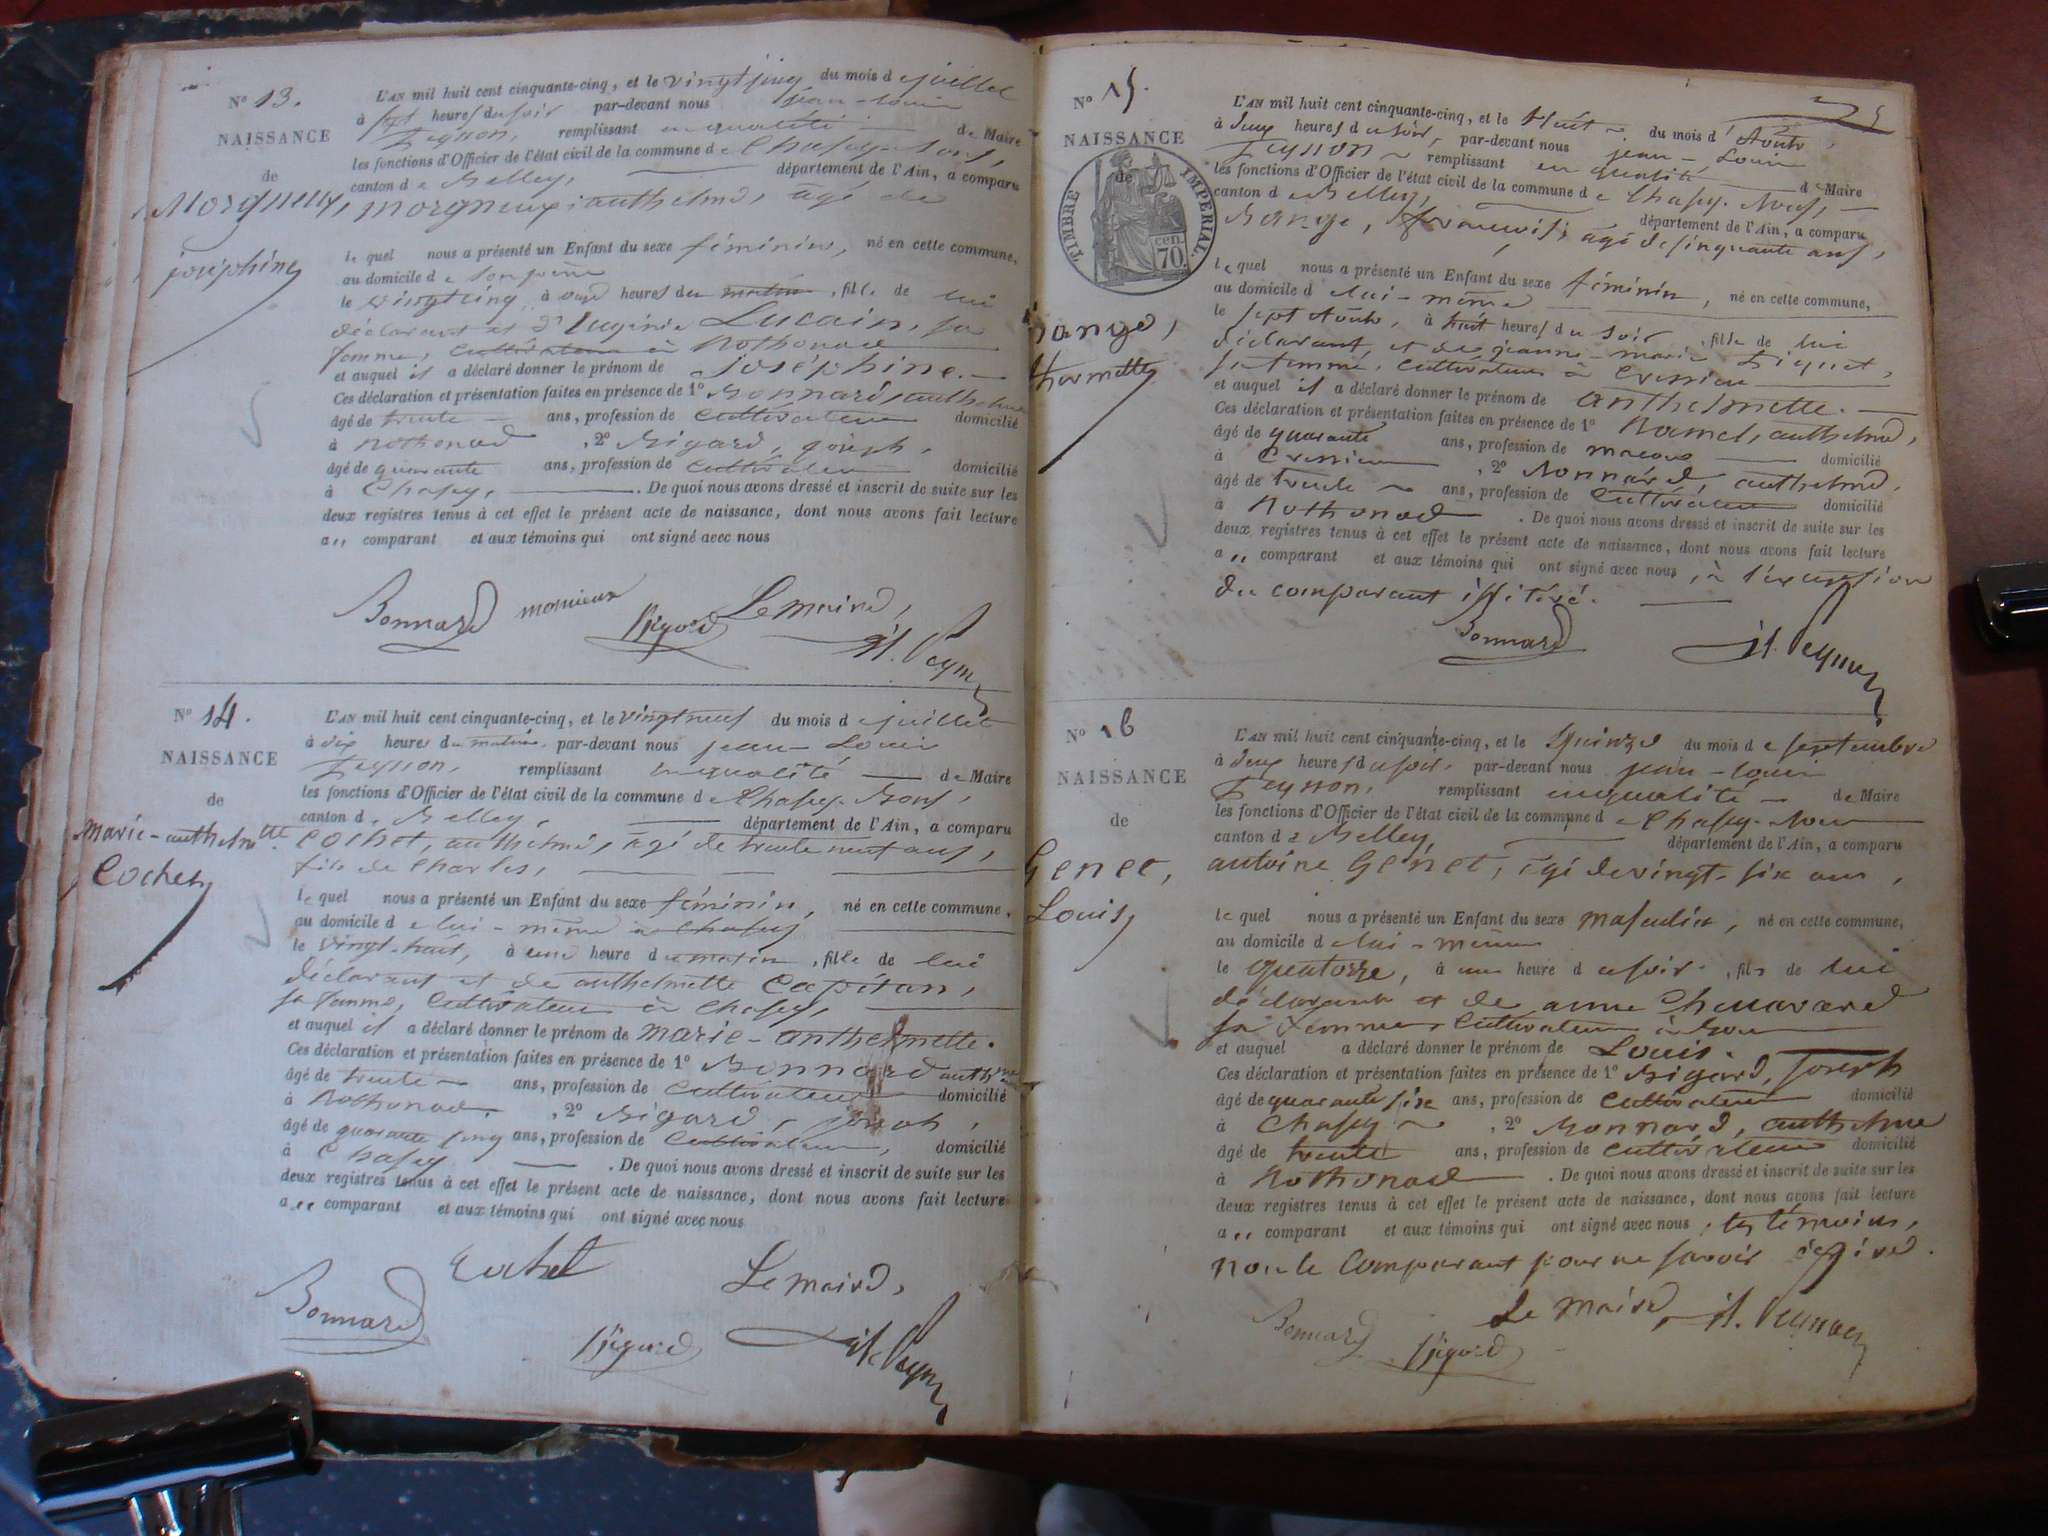 N° 13.
NAISSANCE
de
Morgneux,
joséphine
L'AN mil huit cent cinquante-cinq, et le vingt cinq du mois de juillet
à sept heures du soir par-devant nous jean-Louis
Peysson, remplissant en qualité de Maire
les fonctions d'Officier de l'état civil de la commune de Chasey-Bons,
canton de Belley, département de l'Ain, a comparu
morgneux, anthelme, âgé de
lequel nous a présenté un Enfant du sexe féminin, né en cette commune,
au domicile de son père
le vingt cinq à heures du matin, fille de lui
déclarant et d'Eugénie Lucain, sa
femme, cultivateurs à Rothonod
et auquel il a déclaré donner le prénom de Joséphine.
Ces déclaration et présentation faites en présence de 1° Bonnard, anthelme
âgé de trente ans, profession de cultivateur domicilié
à Rothonod, 2° Bigard, joseph,
âgé de quarante ans, profession de cultivateur domicilié
à Chasey, . De quoi nous avons dressé et inscrit de suite sur les
deux registres tenus à cet effet le présent acte de naissance, dont nous avons fait lecture
au comparant et aux témoins qui ont signé avec nous
Bonnard Bigard Le maire,
N° 14.
NAISSANCE
de
Marie-anthelmtte
Cochet
L'AN mil huit cent cinquante-cinq, et le vingt neuf du mois de juillet
à dix heures du matin, par-devant nous jean-Louis
Peysson, remplissant en qualité de Maire
les fonctions d'Officier de l'état civil de la commune de Chasey-Bons,
canton de Belley, département de l'Ain, a comparu
Cochet, anthelme, âgé de trente neuf ans,
fils de Charles,
lequel nous a présenté un Enfant du sexe féminin, né en cette commune,
au domicile de lui-même à Chasey
le vingt-huit, à une heure du matin, fille de lui
déclarant et de anthelmette Capitan,
sa femme, cultivateurs à Chasey,
et auquel il a déclaré donner le prénom de marie-anthelmette.
Ces déclaration et présentation faites en présence de 1° Bonnard anthme
âgé de trente ans, profession de cultivateur domicilié
à Rothonod, 2° Bigard, joseph,
âgé de quarante cinq ans, profession de cultivateur, domicilié
à Chasey . De quoi nous avons dressé et inscrit de suite sur les
deux registres tenus à cet effet le présent acte de naissance, dont nous avons fait lecture
au comparant et aux témoins qui ont signé avec nous
Cochet Le maire,
Bonnard Bigard
N° 15.
NAISSANCE
de
TIMBRE IMPERIAL.
70. cen.
L'AN mil huit cent cinquante-cinq, et le Huit du mois d'Août,
à deux heures du soir, par-devant nous jean-Louis
Peysson remplissant en qualité de Maire
les fonctions d'Officier de l'état civil de la commune de Chasey-Bons,
canton de Belley, département de l'Ain, a comparu
Bange, françois, âgé de cinquante ans,
lequel nous a présenté un Enfant du sexe féminin, né en cette commune,
au domicile de lui-même
le sept Août, à huit heures du soir, fille de lui
déclarant et de jeanne-marie
sa femme, cultivateurs à Cressieu
et auquel il a déclaré donner le prénom de anthelmette.
Ces déclaration et présentation faites en présence de 1° Ramel, anthelme,
âgé de quarante ans, profession de maçon domicilié
à Cressieu, 2° Bonnard, anthelme,
âgé de trente ans, profession de cultivateur domicilié
à Rothonod . De quoi nous avons dressé et inscrit de suite sur les
deux registres tenus à cet effet le présent acte de naissance, dont nous avons fait lecture
au comparant et aux témoins qui ont signé avec nous, à l'exception
du comparant illitéré.
Bonnard
N° 16
NAISSANCE
de
Genet,
Louis
L'AN mil huit cent cinquante-cinq, et le Quinze du mois de septembre
à deux heures du soir, par-devant nous jean-Louis
Peysson, remplissant en qualité de Maire
les fonctions d'Officier de l'état civil de la commune de Chasey-Bons
canton de Belley, département de l'Ain, a comparu
antoine Genet, âgé de vingt-six ans,
lequel nous a présenté un Enfant du sexe masculin, né en cette commune,
au domicile de lui-même
le quatorze, à une heure du soir, fils de lui
déclarant et de anne Chenavard
sa femme, cultivateurs à Bons
et auquel a déclaré donner le prénom de Louis.
Ces déclaration et présentation faites en présence de 1° Bigard, Joseph
âgé de quarante six ans, profession de cultivateur domicilié
à Chasey, 2° Bonnard, anthelme
âgé de trente ans, profession de cultivateur domicilié
à Rothonod . De quoi nous avons dressé et inscrit de suite sur les
deux registres tenus à cet effet le présent acte de naissance, dont nous avons fait lecture
au comparant et aux témoins qui ont signé avec nous, les témoins,
non le comparant pour ne savoir
Le Maire,
Bonnard Bigard